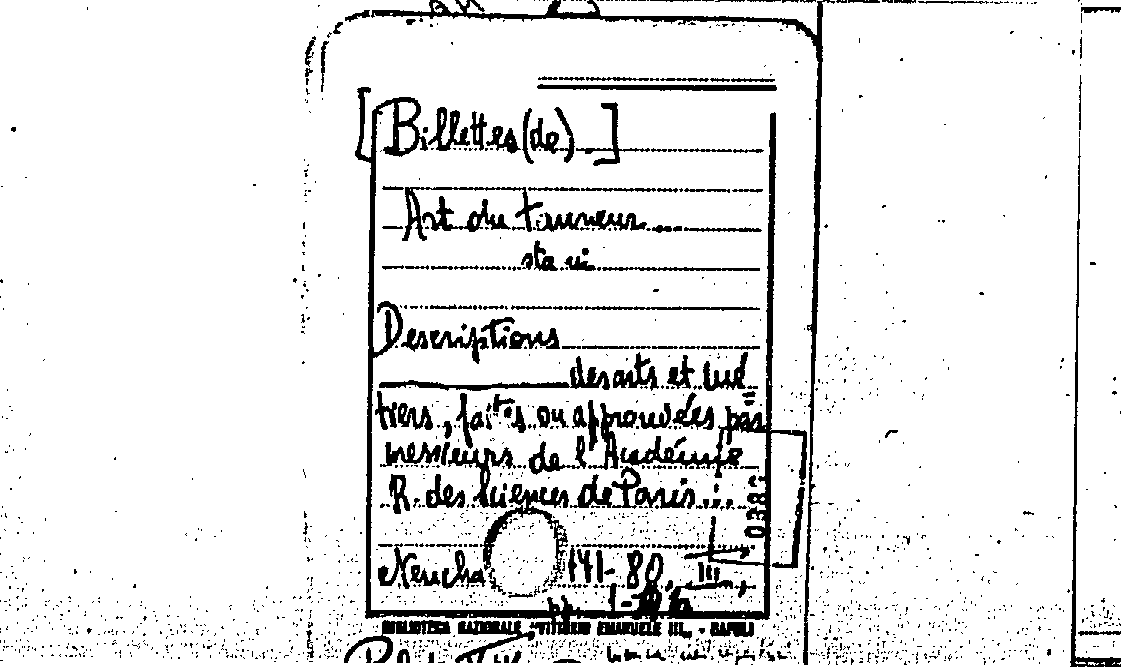 [Billettes (de).]
Art du tanneur....
sta in
Descriptions
des arts et mé=
tiers, faites ou approuvées par
messieurs de l'Académie
R. des Sciences de Paris...
0383
Neucha 80, III,
pp. 1-
BIBLIOTECA NAZIONALE "VITTORIO EMANUELE III" - NAPOLI